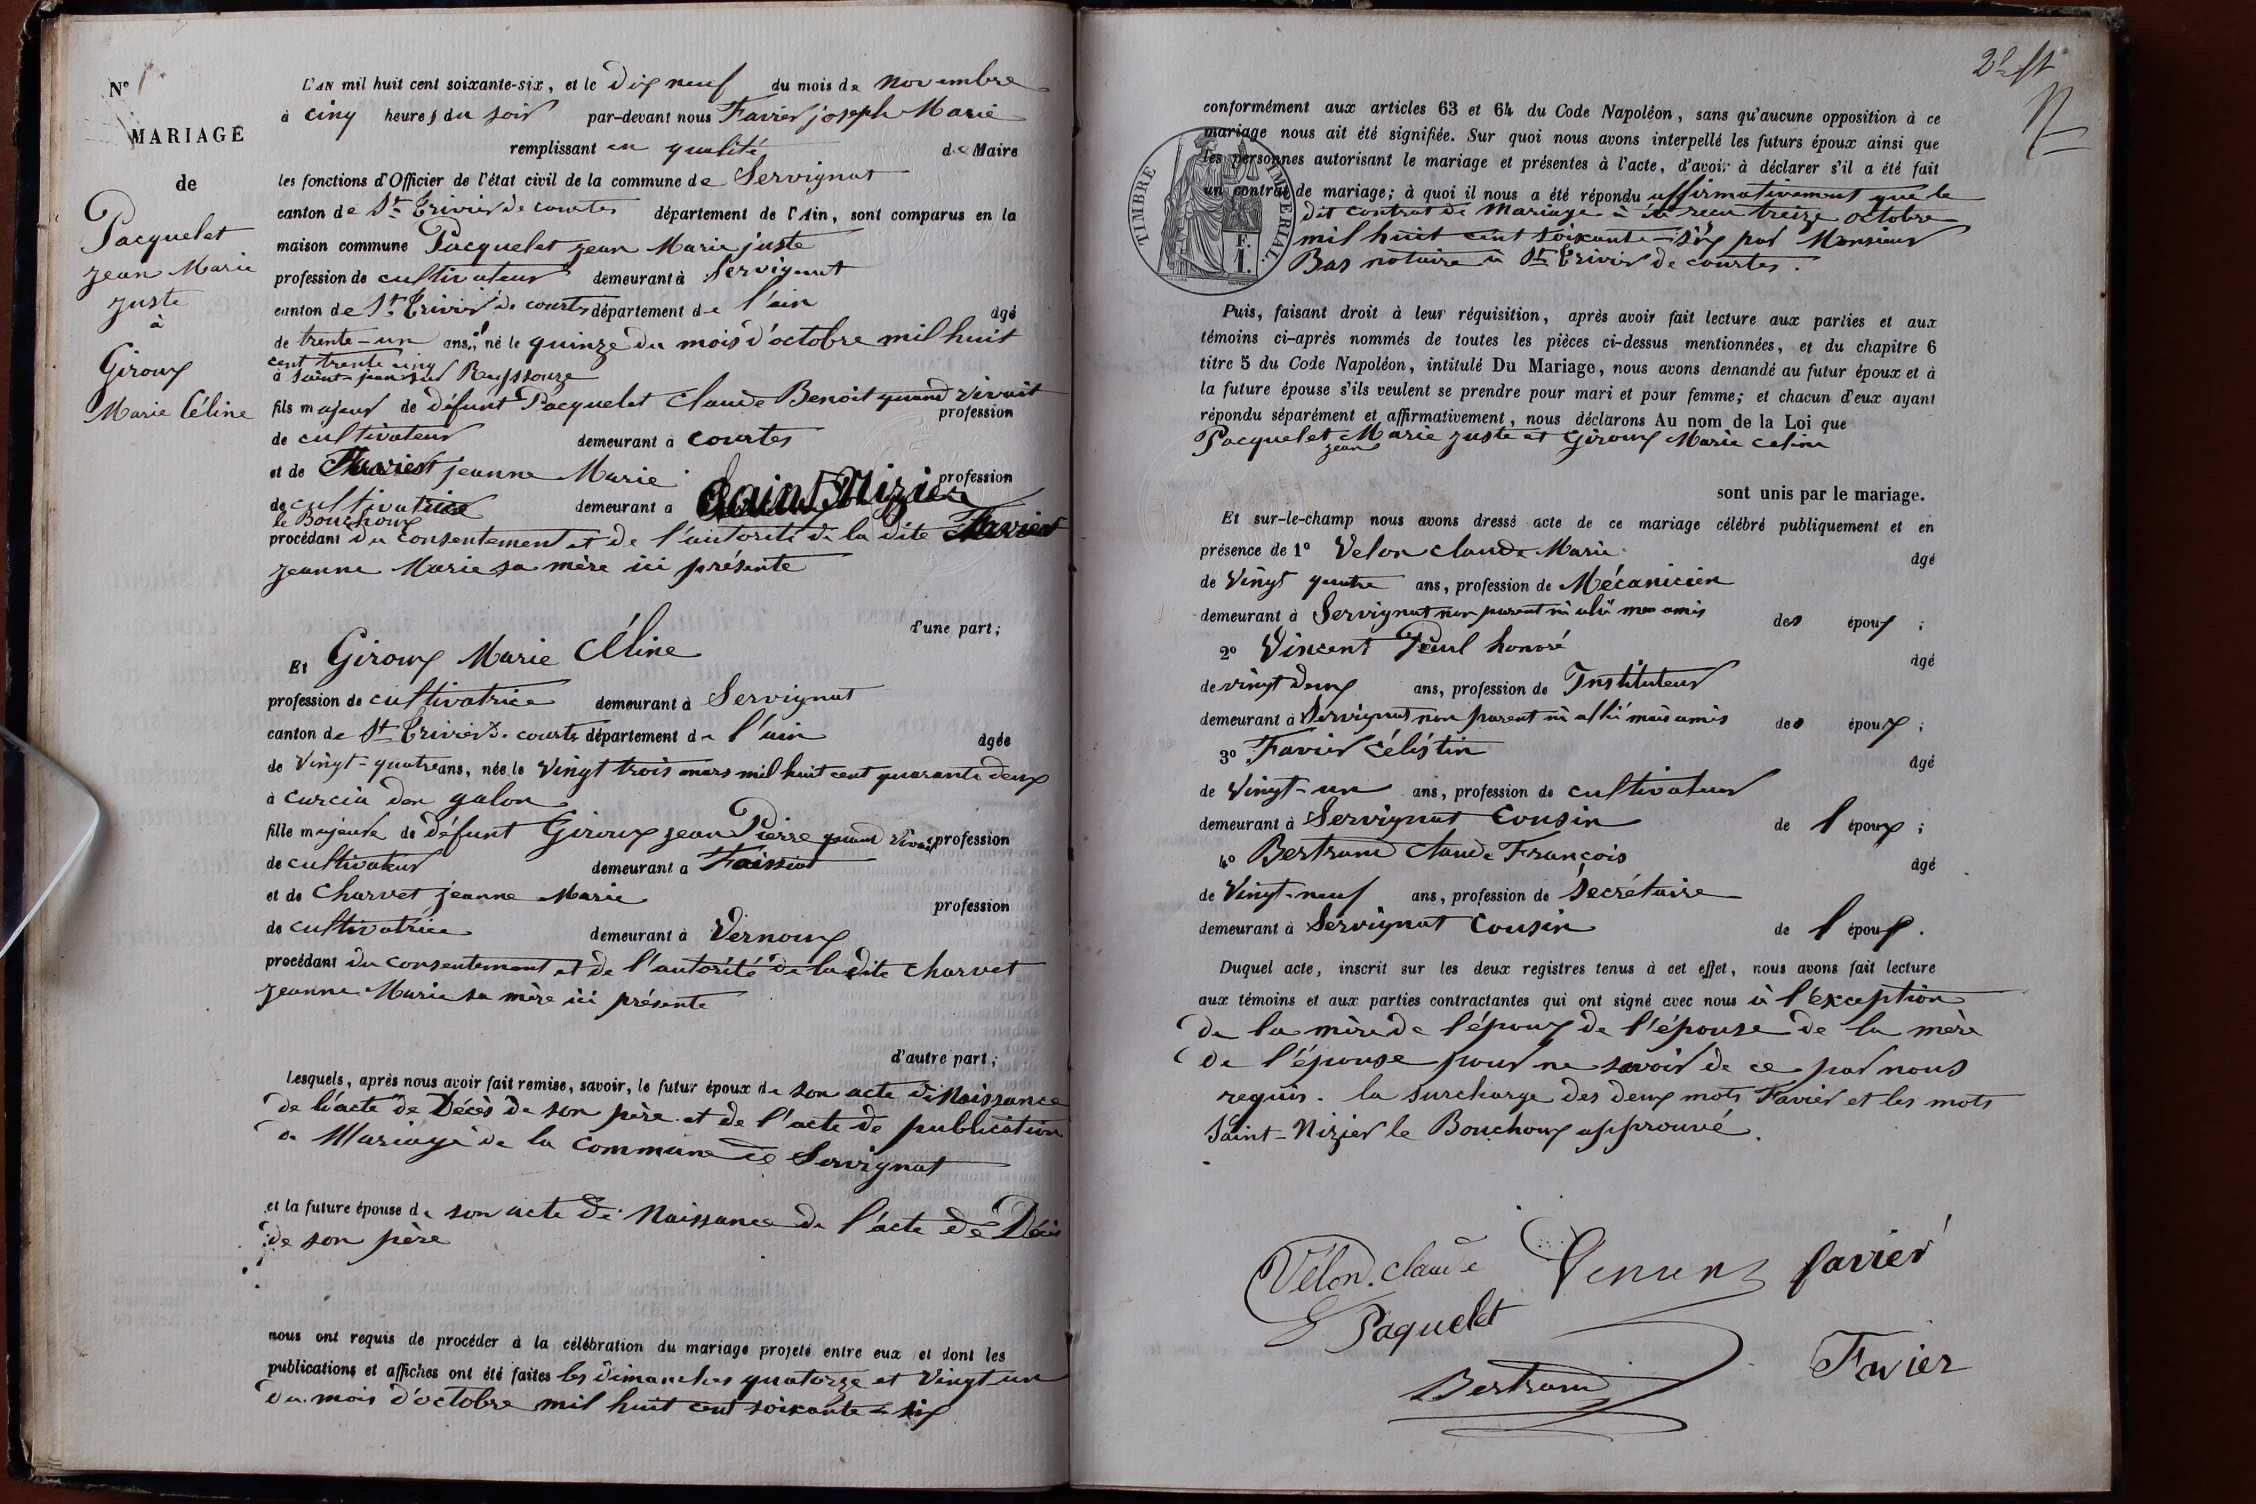 N° 1.
MARIAGE
de
Pacquelet
jean Marie
juste
à
Giroux
Marie Céline
L'AN mil huit cent soixante-six, et le dix neuf du mois de novembre
à cinq heures du soir par-devant nous Favier joseph Marie
remplissant en qualité de Maire
les fonctions d'Officier de l'état civil de la commune de Servignat
canton de St Trivier de courtes département de l'Ain, sont comparus en la
maison commune Pacquelet jean Marie juste
profession de cultivateur demeurant à Servignat
canton de St Trivier de courtes département de l'ain âgé
de trente-un ans, né le quinze du mois d'octobre mil huit
cent trente cinq
à Saint-jean sur Reyssouze
fils majeur de défunt Pacquelet Claude Benoit quand vivait
profession
de cultivateur demeurant à courtes
et de Favier jeanne Marie profession
de cultivatrice demeurant à Saint Nizier
le Bouchoux
procédant du consentement et de l'autorité de la dite Favier
jeanne Marie sa mère ici présente
d'une part;
Et Giroux Marie Céline
profession de cultivatrice demeurant à Servignat
canton de St Trivier de courtes département de l'ain âgée
de vingt-quatre ans, née le vingt trois mars mil huit cent quarante deux
à curcia don galon
fille majeure de défunt Giroux jean Pierre quand vivait profession
de cultivateur demeurant à Foissiat
et de Charvet jeanne Marie
profession
de cultivatrice demeurant à Vernoux
procédant du consentement et de l'autorité de la dite charvet
jeanne Marie sa mère ici présente
d'autre part;
Lesquels, après nous avoir fait remise, savoir, le futur époux de son acte de Naissance
de l'acte de Décès de son père et de l'acte de publication
de Mariage de la commune de Servignat
et la future épouse de son acte de Naissance de l'acte de Décès
de son père
nous ont requis de procéder à la célébration du mariage projeté entre eux et dont les
publications et affiches ont été faites les dimanches quatorze et vingt un
du mois d'octobre mil huit cent soixante-six
conformément aux articles 63 et 64 du Code Napoléon, sans qu'aucune opposition à ce
mariage nous ait été signifiée. Sur quoi nous avons interpellé les futurs époux ainsi que
les personnes autorisant le mariage et présentes à l'acte, d'avoir à déclarer s'il a été fait
un contrat de mariage; à quoi il nous a été répondu affirmativement que le
dit contrat de Mariage à été recu treize octobre
mil huit cent soixante-six par Monsieur
Bas notaire à St Trivier de courtes.
TIMBRE IMPERIAL
F.
1.
Puis, faisant droit à leur réquisition, après avoir fait lecture aux parties et aux
témoins ci-après nommés de toutes les pièces ci-dessus mentionnées, et du chapitre 6
titre 5 du Code Napoléon, intitulé Du Mariage, nous avons demandé au futur époux et à
la future épouse s'ils veulent se prendre pour mari et pour femme; et chacun d'eux ayant
répondu séparément et affirmativement, nous déclarons Au nom de la Loi que
Pacquelet Marie juste et Giroux Marie celine
jean
sont unis par le mariage.
Et sur-le-champ nous avons dressé acte de ce mariage célébré publiquement et en
présence de 1° Velon claude Marie âgé
de vingt quatre ans, profession de Mécanicien
demeurant à Servignat non parent ni alié mais amis des époux;
2° Vincent Paul honoré âgé
de vingt deux ans, profession de Instituteur
demeurant à Servignat non parent ni allié mais amis des époux;
3° Favier Célestin âgé
de vingt-un ans, profession de cultivateur
demeurant à Servignat cousin de l époux;
4° Bertrand Claude François âgé
de vingt-neuf ans, profession de Secrétaire
demeurant à Servignat cousin de l époux.
Duquel acte, inscrit sur les deux registres tenus à cet effet, nous avons fait lecture
aux témoins et aux parties contractantes qui ont signé avec nous à l'exception
de la mère de l'époux de l'épouse de la mère
de l'épouse pour ne savoir de ce par nous
requis. la surcharge des deux mots Favier et les mots
Saint-Nizier le Bouchoux approuvé.
Velon. claude Vincent favier
Paquelet
Favier
Bertrand